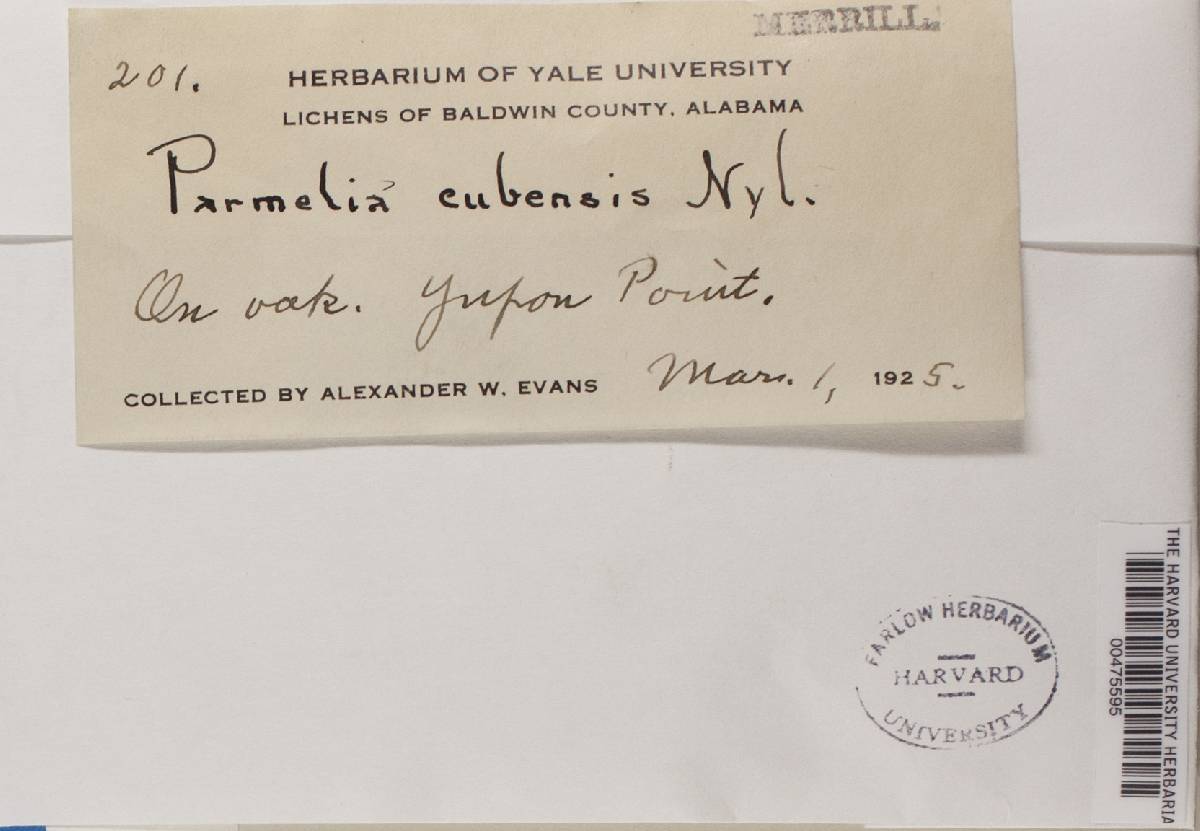 MERRILL.
201.
HERBARIUM OF YALE UNIVERSITY
LICHENS OF BALDWIN COUNTY, ALABAMA
Parmelia cubensis Nyl.
On oak. Yupon Point.
COLLECTED BY ALEXANDER W. EVANS Mar. 1, 1925.
FARLOW HERBARIUM
HARVARD
UNIVERSITY
THE HARVARD UNIVERSITY HERBARIA
00475595